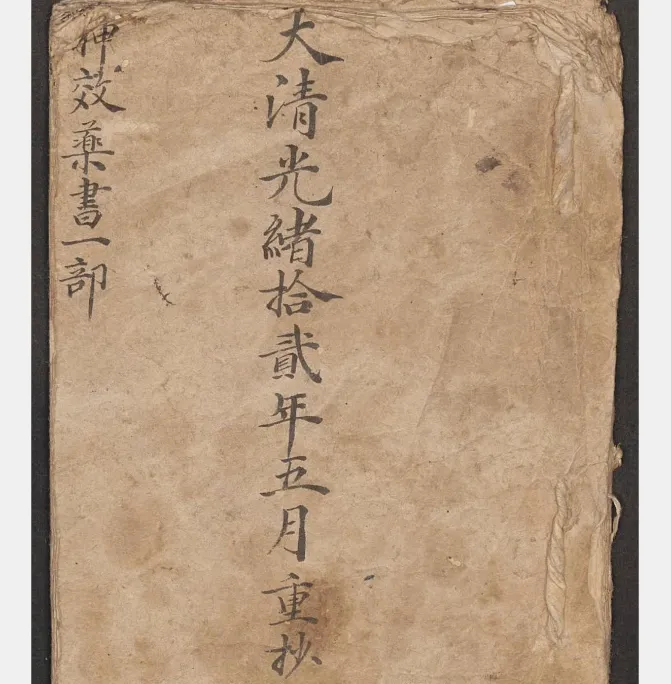 大清光緒拾貳年五月重抄
神效藥書一部